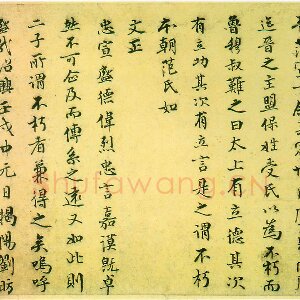 晉之主盟保姓受氏以為不朽而
魯穆叔難之曰太上有立德其次
有立功其次有立言是之謂不朽
本朝范氏如
文正
忠宣盛德偉烈忠言嘉謨既卓
然不可企及而傳系之遠又如此則
二子所謂不朽者兼得之矣嗚呼
盛哉紹興壬戌中元日揭陽劉昉
Shufawang.CN